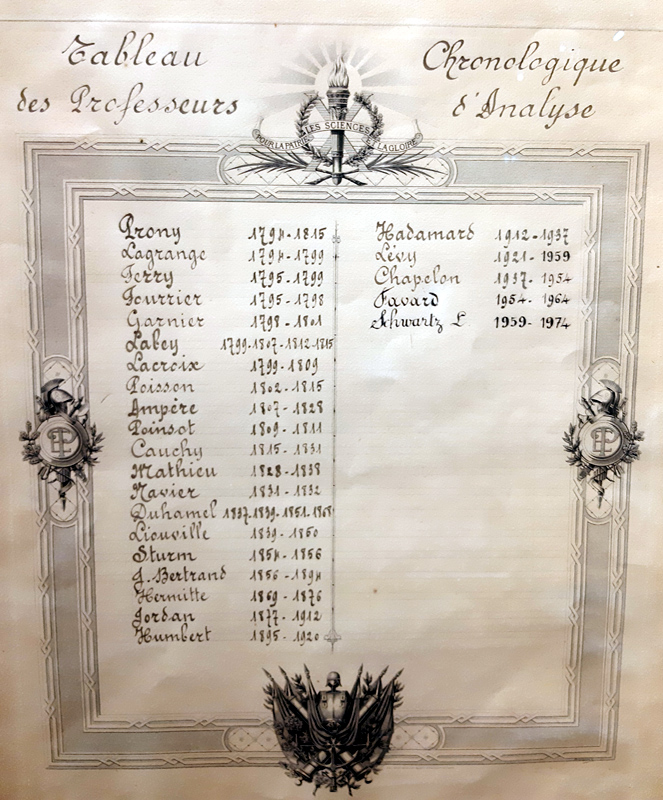 Tableau Chronologique
des Professeurs d'Analyse
POUR LA PATRIE LES SCIENCES ET LA GLOIRE
Prony 1794-1815
Lagrange 1794-1799
Ferry 1795-1799
Fourrier 1795-1798
Garnier 1798-1801
Labey 1799-1807-1812-1815
Lacroix 1799-1809
Poisson 1802-1815
Ampère 1807-1828
Poinsot 1809-1811
Cauchy 1815-1831
Mathieu 1828-1838
Navier 1831-1832
Duhamel 1837-1839-1851-1868
Liouville 1839-1850
Sturm 1854-1856
J. Bertrand 1856-1894
Hermitte 1869-1876
Jordan 1877-1912
Humbert 1895-1920
Hadamard 1912-1937
Lévy 1921-1959
Chapelon 1937-1954
Favard 1954-1964
Schwartz L 1959-1974
EP
EP